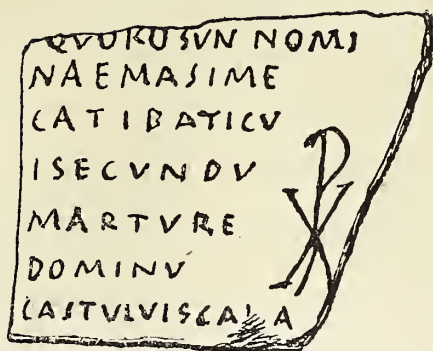 QVORUSVN NOMI
NAEMASIME
CATIBATICV
ISECVNDV
MARTVRE
DOMINV
CASTVLVISCALA